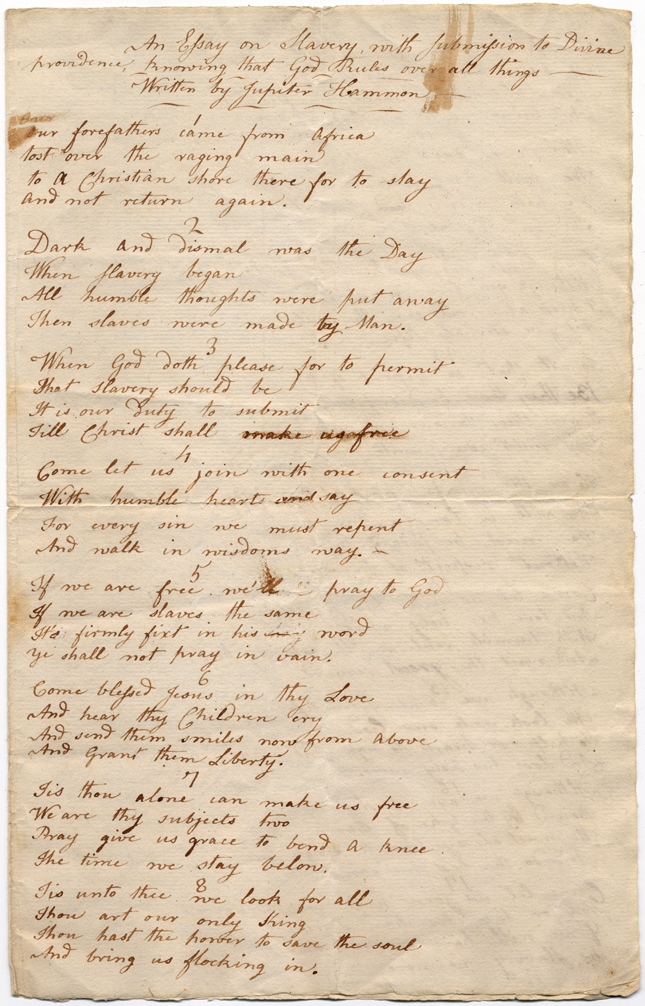 An Essay on Slavery, with submission to Divine
providence, knowing that God Rules over all things
Written by Jupiter Hammon
1
our forefathers came from africa
tost over the raging main
to a Christian shore there for to stay
and not return again.
2
Dark and dismal was the Day
When slavery began
All humble thoughts were put away
Then slaves were made by Man.
3
When God doth please for to permit
That slavery should be
It is our duty to submit
Till Christ shall make us free
4
Come let us join with one consent
With humble hearts and say
For every sin we must repent
And walk in wisdoms way.
5
If we are free we'll pray to God
If we are slaves the same
It's firmly fixt in his word
ye shall not pray in vain.
6
Come blessed Jesus in thy Love
And hear thy Children cry
And send them smiles now from above
And Grant them Liberty.
7
Tis thou alone can make us free
We are thy subjects two
Pray give us grace to bend a knee
The time we stay below.
8
Tis unto thee we look for all
Thou art our only King
Thou hast the power to save the soul
And bring us flocking in.